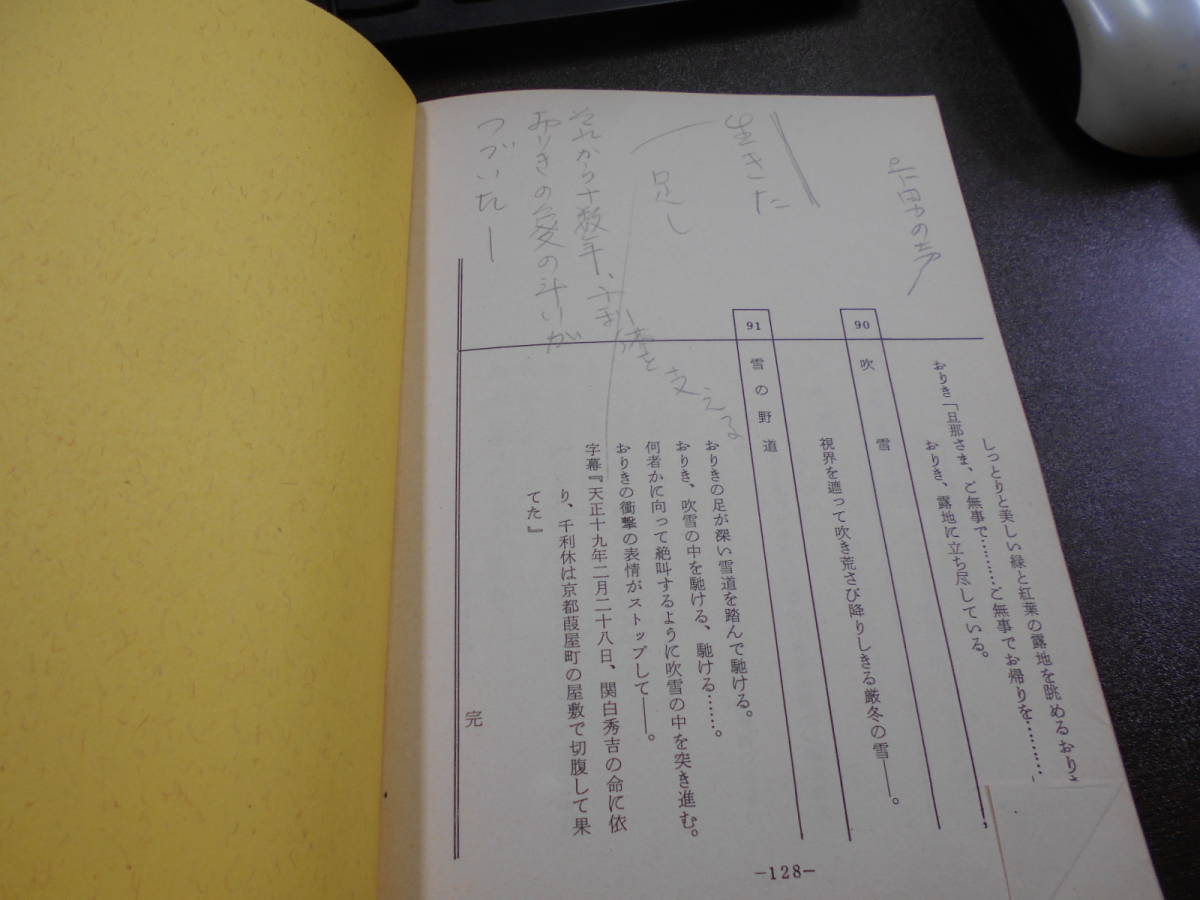 しっとりと美しい緑と紅葉の露地を眺めるおりき
おりき「旦那さま、ご無事で………ご無事でお帰りを………
おりき、露地に立ち尽している。
90 吹雪
視界を遮って吹き荒さび降りしきる厳冬の雪――。
91 雪の野道
おりきの足が深い雪道を踏んで馳ける。
おりき、吹雪の中を馳ける、馳ける……。
何者かに向って絶叫するように吹雪の中を突き進む。
おりきの衝撃の表情がストップして――。
字幕『天正十九年二月二十八日、関白秀吉の命に依
り、千利休は京都葭屋町の屋敷で切腹して果
てた』
完
の声
生きた
足し
それから十数年、
を支える
おりきの愛の斗いが
つづいた―
-128-